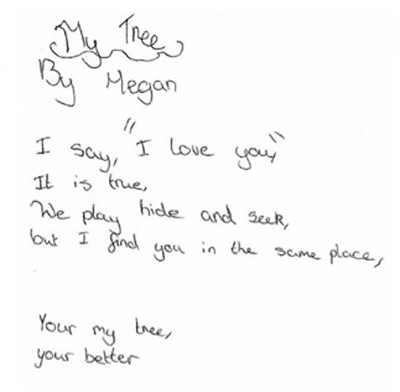 My Tree
By Megan
I say, "I love you,"
It is true,
We play hide and seek,
but I find you in the same place,
Your my tree,
your better